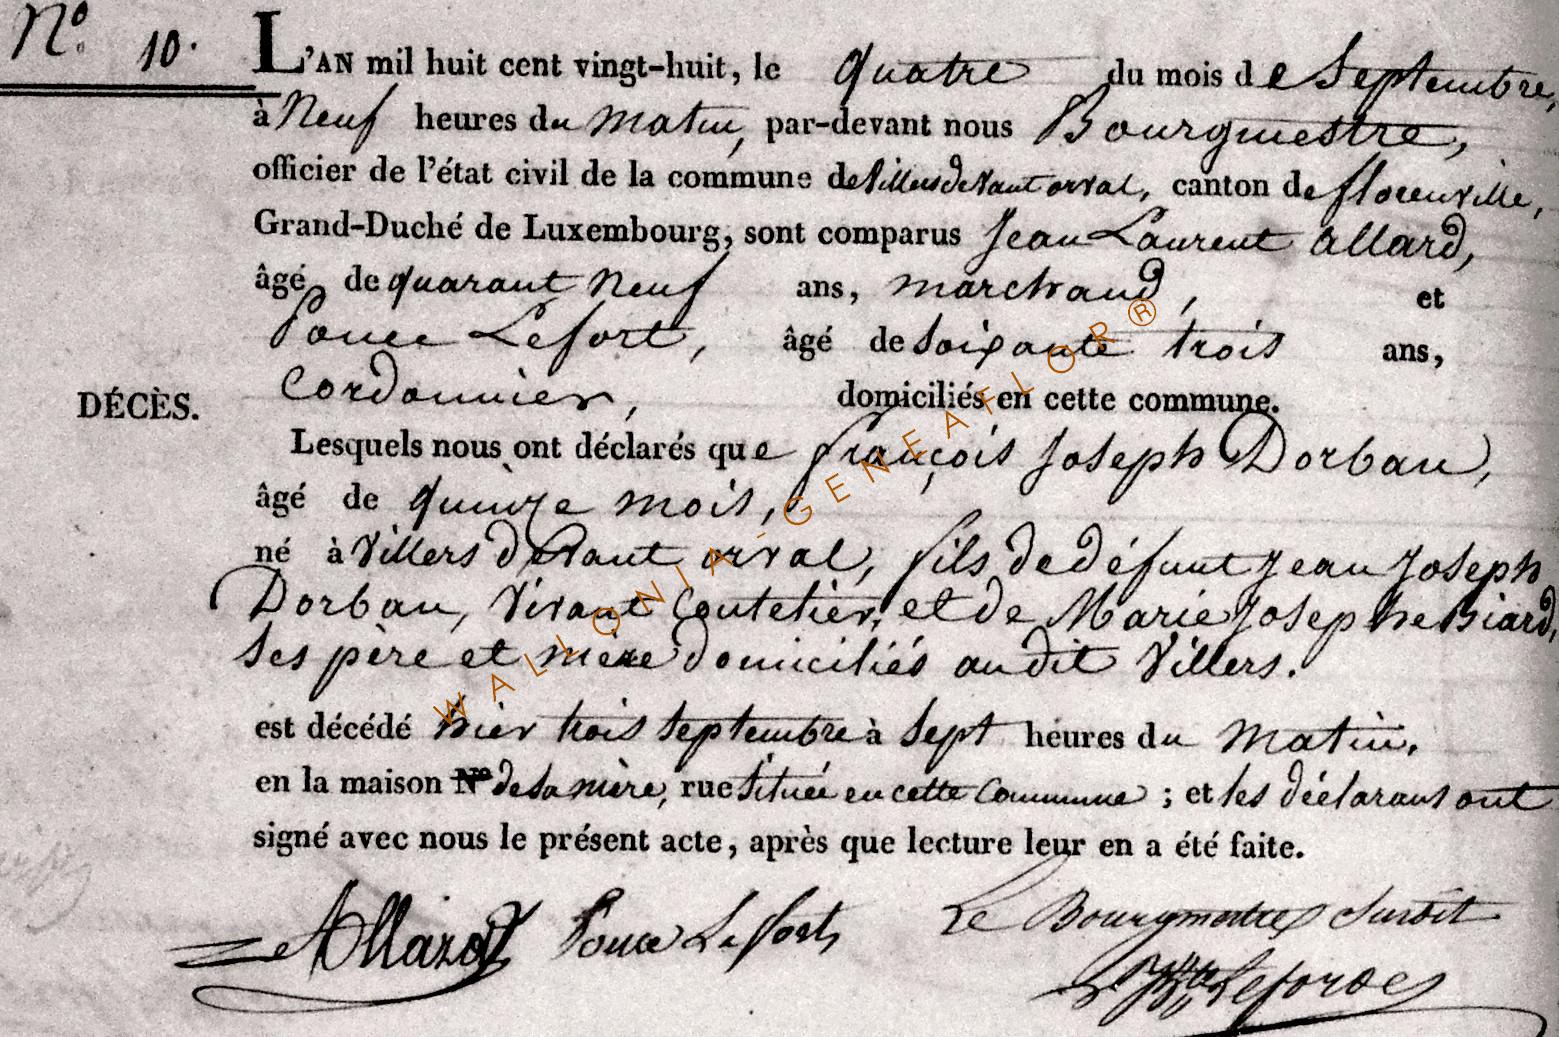 N° 10.
L'AN mil huit cent vingt-huit, le quatre du mois de Septembre,
à Neuf heures du Matin, par-devant nous Bourgmestre,
officier de l'état civil de la commune de Villers devant orval, canton de florenville,
Grand-Duché de Luxembourg, sont comparus Jean Laurent Allard,
âgé de quarant Neuf ans, marchand, et
Ponce Lefort, âgé de Soixante trois ans,
DÉCÈS.
Cordonnier, domiciliés en cette commune.
Lesquels nous ont déclarés que françois Joseph Dorban,
âgé de quinze mois,
né à Villers devant orval, fils de défunt Jean Joseph
Dorban, Vivant Coutelier, et de Marie Josephe Biard,
Ses père et mère domiciliés audit Villers.
est décédé hier trois Septembre à Sept heures du Matin.
en la maison N° de Sa mère, rue Située en cette Commune ; et les déclarans ont
signé avec nous le présent acte, après que lecture leur en a été faite.
Allard Ponce Lefort Le Bourgmestre Susdit
WALLONIA-GENEAFLOR®